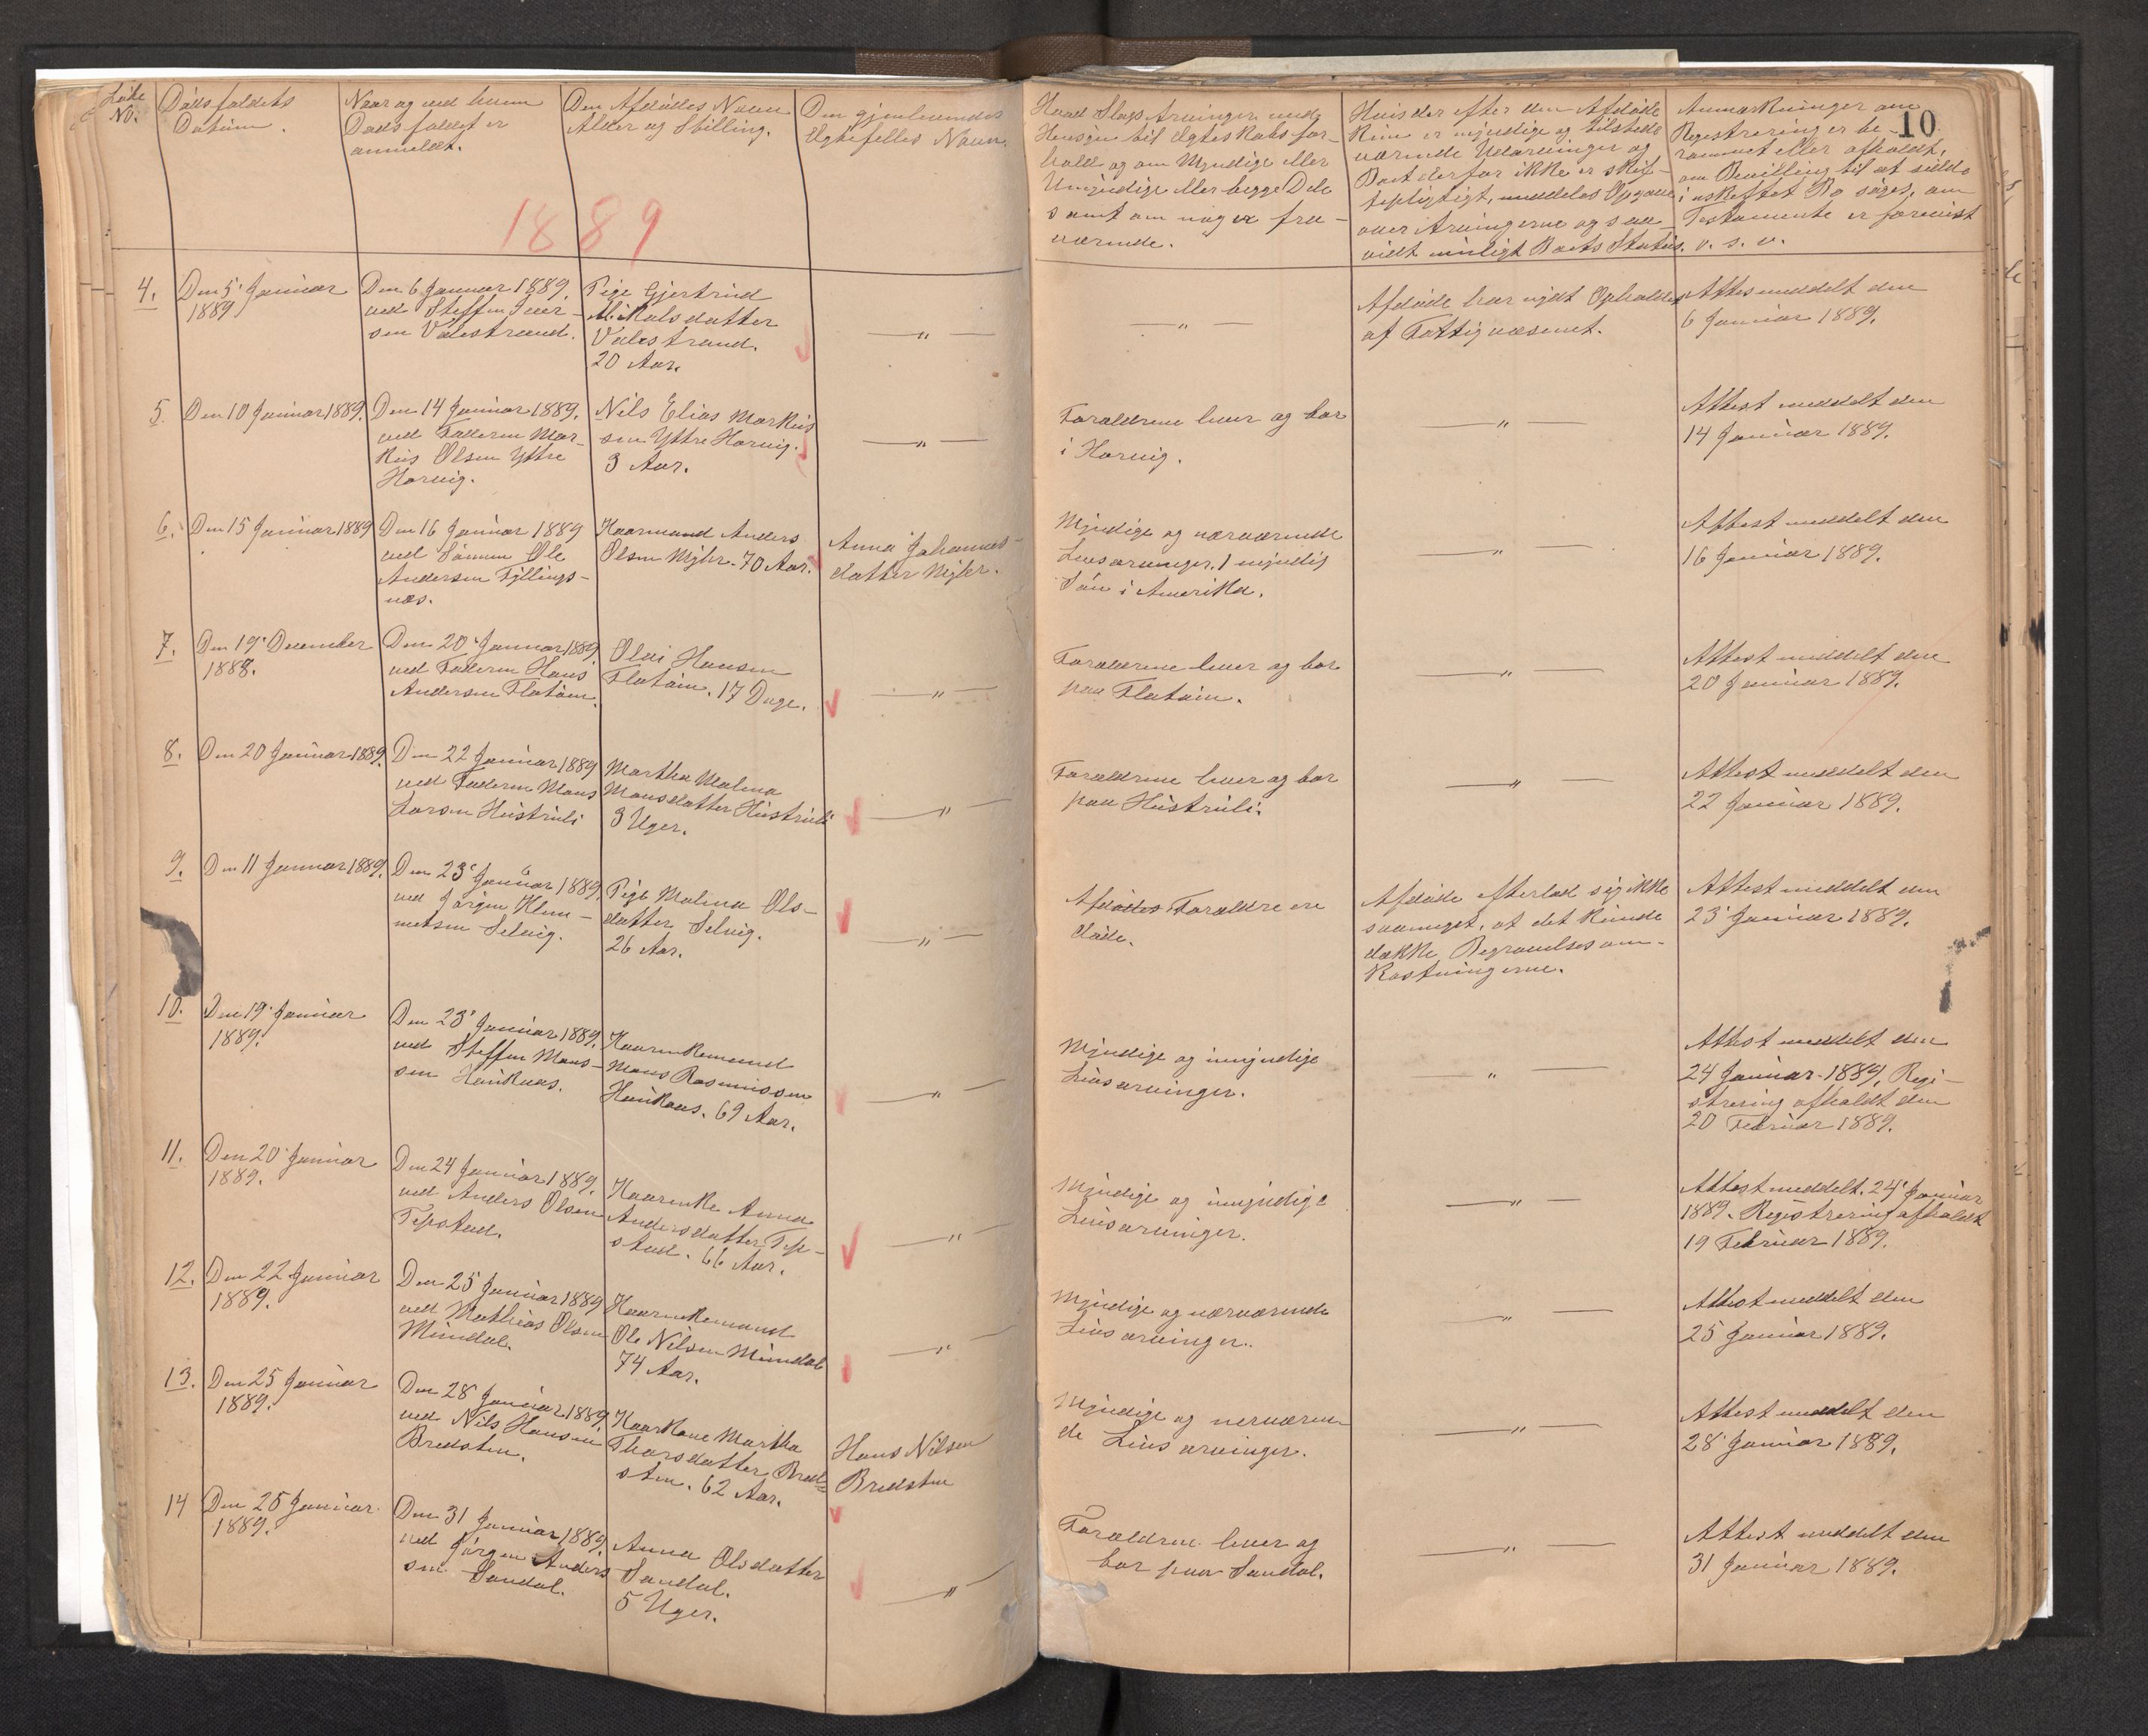 Løbe
No.
Dødsfaldets
Datum.
Naar og ved hvem
Dødsfaldet er
anmeldt.
Den Afdødes Navn
Alder og Stilling.
Den gjenlevendes
Ægtefelles Navn.
Hvad Slags Arvinger med
Hensyn til Ægteskabsfor-
hold og om Myndige eller
Umyndige eller begge Dele
samt om nogen fra-
værende.
Hvis der efter den Afdøde
kun er myndige og tilstede
værende Udarvinger og
Boet derfor ikke er skif-
tepligtigt, meddeles Opgave
over Arvingerne og saa
vidt muligt Boets Status.
Anmærkninger om
Registrering er be-
rammet eller afholdt,
om Bevilling til at sidde
i uskiftet Bo søges, om
Testamente er forevist
o. s. v.
10
1889
4.
Den 5' Januar
1889
Den 6 Januar 1889.
ved Steffen Iver-
sen Valestrand.
Pige Gjertrud
Mikalsdatter
Valestrand.
20 Aar.
— " —
— " —
Afdøde har nydt Ophold
af Fattigvæsenet.
Attes meddelt den
6 Januar 1889.
5.
Den 10 Januar 1889.
Den 14 Januar 1889.
ved Faderen Mar-
kus Olsen Yttre
Horvig.
Nils Elias Markus
sen Yttre Horvig.
3 Aar.
— " —
Forældrene lever og bor
i Horvig.
— " —
Attest meddelt den
14 Januar 1889.
6.
Den 15 Januar 1889
Den 16 Januar 1889
ved Sønnen Ole
Andersen Fyllings-
næs.
Kaarmand Anders
Olsen Myhr. 70 Aar.
Anna Johannes-
datter Myhr.
Myndige og nærværende
Livsarvinger. 1 myndig
Søn i Amerika.
— " —
Attest meddelt den
16 Januar 1889.
7.
Den 19' December
1888.
Den 20' Januar 1889
ved Faderen Hans
Andersen Flatøen.
Olai Hansen
Flatøen. 17 Dage.
— " —
Forældrene lever og bor
paa Flatøen.
— " —
Attest meddelt den
20 Januar 1889.
8.
Den 20 Januar 1889.
Den 22 Januar 1889
ved Faderen Mons
Larsen Hustruli
Martha Malena
Monsdatter Hustruli
3 Uger.
— " —
Forældrene lever og bor
paa Hustruli.
— " —
Attest meddelt den
22 Januar 1889.
9.
Den 11 Januar 1889.
Den 23' Januar 1889.
ved Jørgen Klem-
metsen Selvig.
Pige Malena Ols-
datter Selvig.
26 Aar.
— " —
Afdødes Forældre ere
døde.
Afdøde efterlod sig ikke
saameget, at det kunde
dække Begravelsesom-
kostningerne.
Attest meddelt den
23' Januar 1889.
10.
Den 19' Januar
1889.
Den 23' Januar 1889.
ved Steffen Mons-
sen Haukaas.
Kaarenkemand
Mons Rasmussen
Haukaas. 69 Aar.
— " —
Myndige og umyndige
Livsarvinger.
— " —
Attest meddelt den
24 Januar 1889. Regi-
strering afholdt den
20 Februar 1889.
11.
Den 20' Januar
1889.
Den 24 Januar 1889.
ved Anders Olsen
Tepstad.
Kaarenke Anna
Andersdatter Tep-
stad. 66 Aar.
— " —
Myndige og umyndige
Livsarvinger.
— " —
Attest meddelt. 24' Januar
1889. Registrering afholdt
19 Februar 1889.
12.
Den 22 Januar
1889.
Den 25 Januar 1889
ved Mathias Olsen
Mundal.
Kaarenkemand
Ole Nilsen Mundal
74 Aar.
— " —
Myndige og nærværende
Livsarvinger.
— " —
Attest meddelt den
25 Januar 1889.
13.
Den 25 Januar
1889.
Den 28 Januar 1889
ved Nils Hansen
Bredsten.
Kaarkone Martha
Thorsdatter Bred-
sten. 62 Aar.
Hans Nilsen
Bredsten
Myndige og nerværen-
de Livsarvinger.
— " —
Attest meddelt den
28' Januar 1889.
14
Den 25 Januar
1889.
Den 31 Januar 1889.
ved Jørgen Anders
sen Sandal.
Anna Olsdatter
Sandal.
5 Uger.
— " —
Forældrene lever og
bor paa Sandal.
— " —
Attest meddelt den
31 Januar 1889.